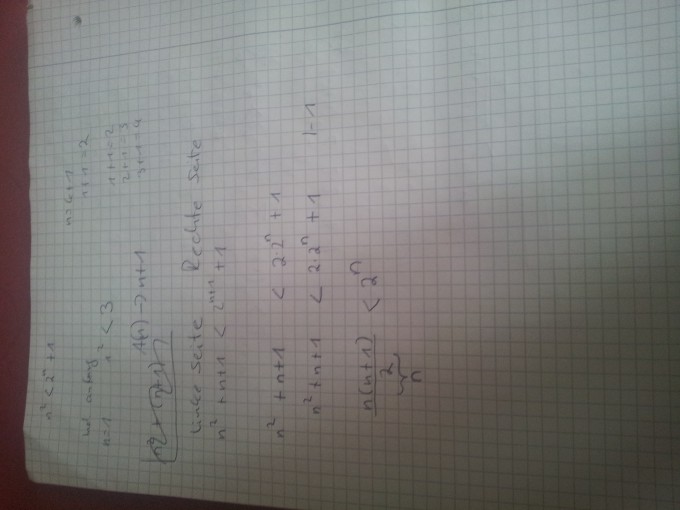 n² < 2ⁿ + 1
n = n+1
n+1 = 2
n=1 1² < 3
1+1=2
2+1=3
3+1=4
A(n) -> n+1
n² + (n+1)
Linke Seite Rechte Seite
n² + n+1 < 2ⁿ⁺¹ + 1
n² + n+1 < 2·2ⁿ + 1
n² + n+1 < 2·2ⁿ + 1 |-1
n(n+1) / 2 < 2ⁿ
n